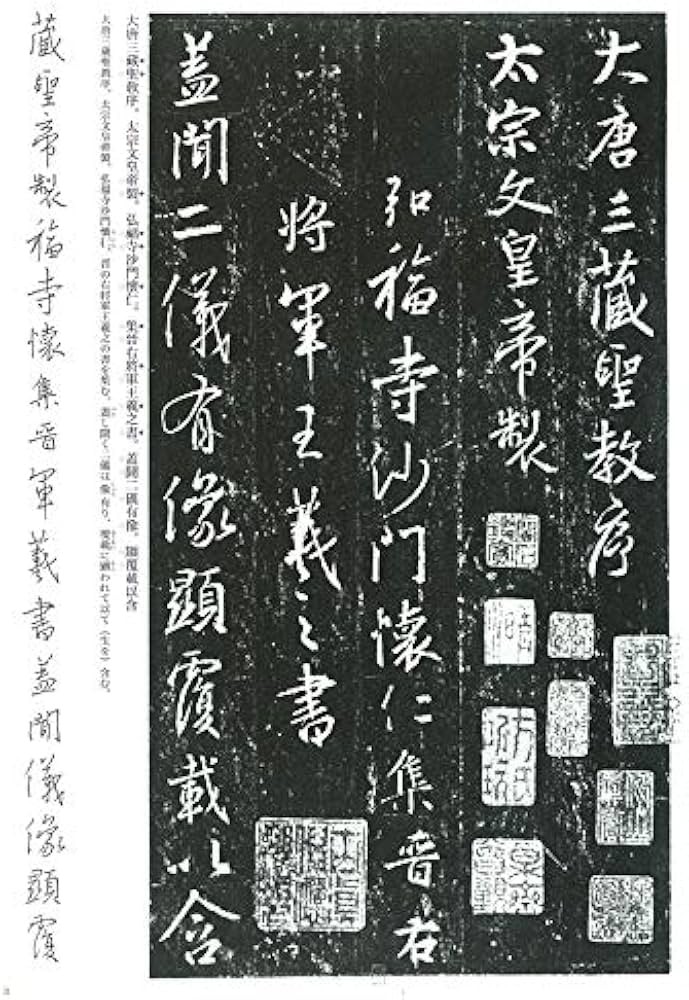 大唐三藏聖教序
太宗文皇帝製
弘福寺沙門懷仁集晉右
將軍王羲之書
蓋聞二儀有像顯覆載以含
大唐三藏聖教序。太宗文皇帝製。弘福寺沙門懷仁。集晉右將軍王羲之書。蓋聞二儀有像。顯覆載以含
大唐三蔵聖教序。太宗文皇帝製。弘福寺沙門懐仁、晋の右将軍王羲之の書を集む。蓋し聞く、二儀は像有り、覆載に顕われて以て（生を）含む。
藏聖帝製福寺懷集晉軍羲書蓋聞儀像顯覆